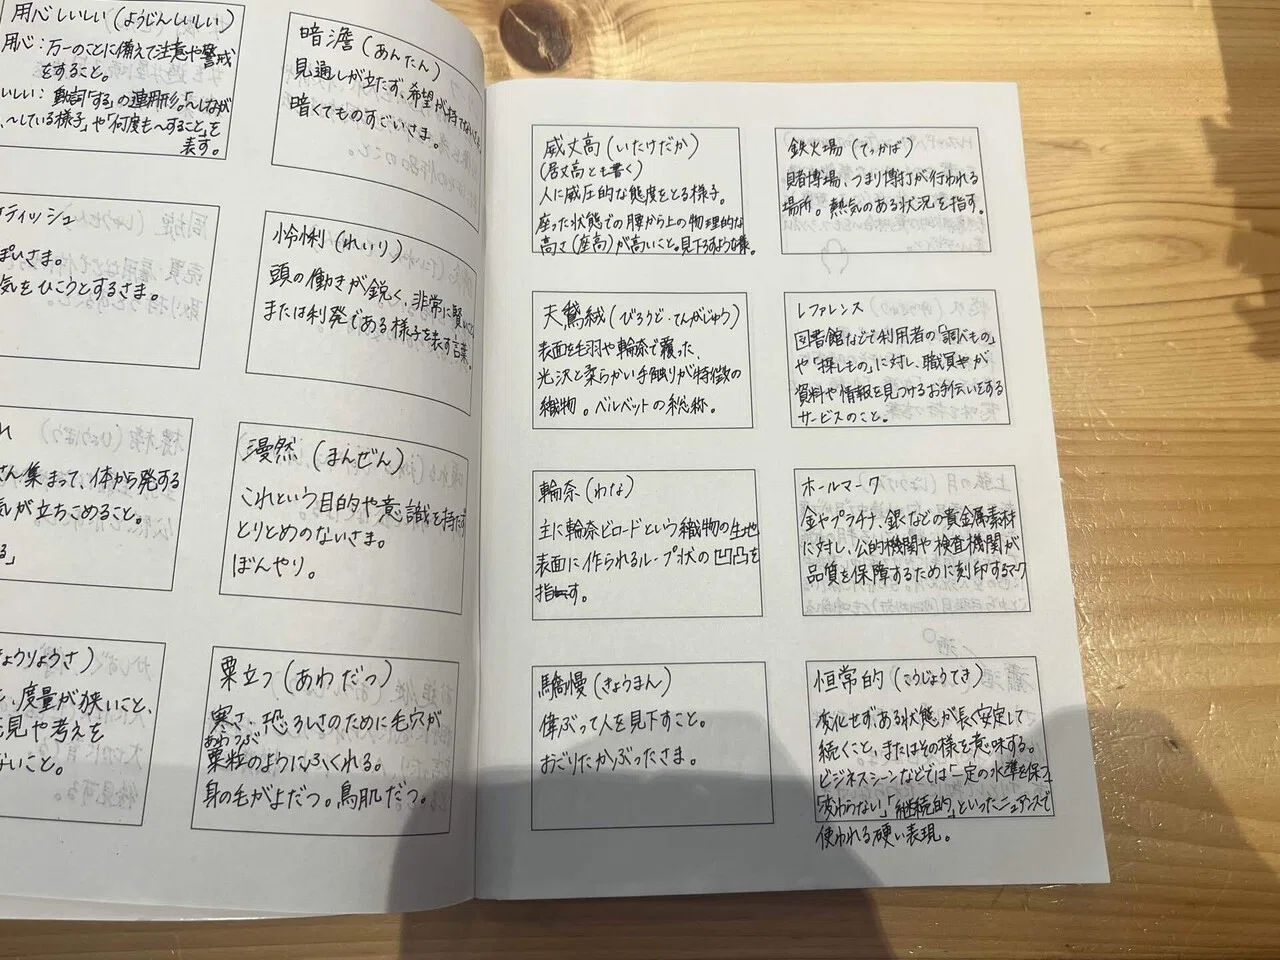 用心しいしい(ようじんしいしい)
用心:万一のことに備えて注意や警戒
をすること。
しいしい: 動詞「する」の連用形。「~しなが
、~している様子」や「何度も~すること」を
表す。
ティッシュ
ぽいさま。
気をひこうとするさま。
さん集まって、体から発する
気が立ちこめること。
る」
きょうりょうさ)
、度量が狭いこと、
見や考えを
ないこと。
暗澹(あんたん)
見通しが立たず、希望が持てない
暗くてものすごいさま。
怜悧(れいり)
頭の働きが鋭く、非常に賢いこと
または利発である様子を表す言葉。
漫然(まんぜん)
これという目的や意識を持たず
とりとめのないさま。
ぼんやり。
粟立つ(あわだつ)
寒さ、恐ろしさのために毛穴が
あわつぶ
粟粒のようにふくれる。
身の毛がよだつ。鳥肌だつ。
威丈高(いたけだか)
(居丈高とも書く)
人に威圧的な態度をとる様子。
座った状態での腰から上の物理的な
高さ(座高)が高いこと。見下ろすような様。
天鵞絨(びろうど・てんがじゅう)
表面を毛羽や輪奈で覆った、
光沢と柔らかい手触りが特徴の
織物。ベルベットの総称。
輪奈(わな)
主に輪奈ビロードという織物の生地
表面に作られるループ状の凹凸を
指す。
驕慢(きょうまん)
偉ぶって人を見下すこと。
おごりたかぶったさま。
鉄火場(てっかば)
賭博場、つまり博打が行われる
場所。熱気のある状況を指す。
レファレンス
図書館などで利用者の「調べもの」
や「探しもの」に対し、職員やが
資料や情報を見つけるお手伝いをする
サービスのこと。
ホールマーク
金やプラチナ、銀などの貴金属素材
に対し、公的機関や検査機関が
品質を保障するために刻印するマーク
恒常的(こうじょうてき)
変化せずある状態が長く安定して
続くこと、またはその様を意味する。
ビジネスシーンなどでは「一定の水準を保つ」
「変わらない」「継続的」といったニュアンスで
使われる硬い表現。